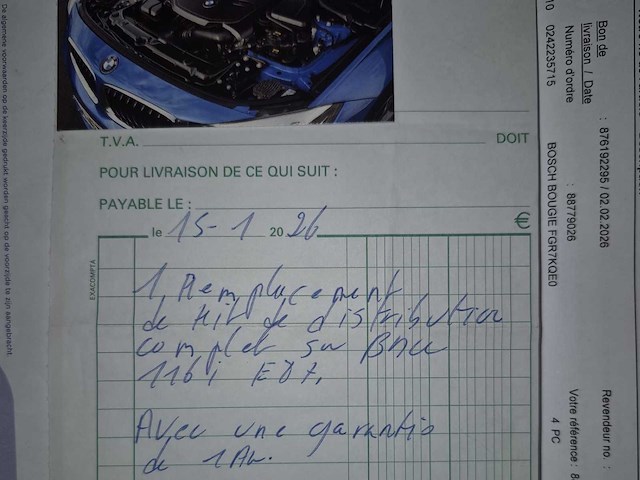 T.V.A. DOIT
POUR LIVRAISON DE CE QUI SUIT :
PAYABLE LE :
le 15-1 2026 €
EXACOMPTA
1 Remplacement
de Kit de distribution
complet sur BMW
116i E87.
Avec une garantie
de 1 An.
De algemene voorwaarden op de keerzijde gedrukt worden geacht op de voorzijde te zijn aangebracht.
Bon de
livraison / Date : 876192295 / 02.02.2026
Numéro d'ordre : 88779026
10 0242235715 BOSCH BOUGIE FGR7KQE0 4 PC
Revendeur no. :
Votre référence : 8